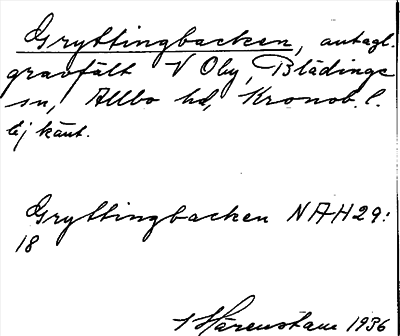 Gryttingbacken, antagl.
gravfält V Oby, Blädinge
sn, Allbo hd, Kronob. l.
Ej känt.
Gryttingbacken NAH29:
18
Härenstam 1936